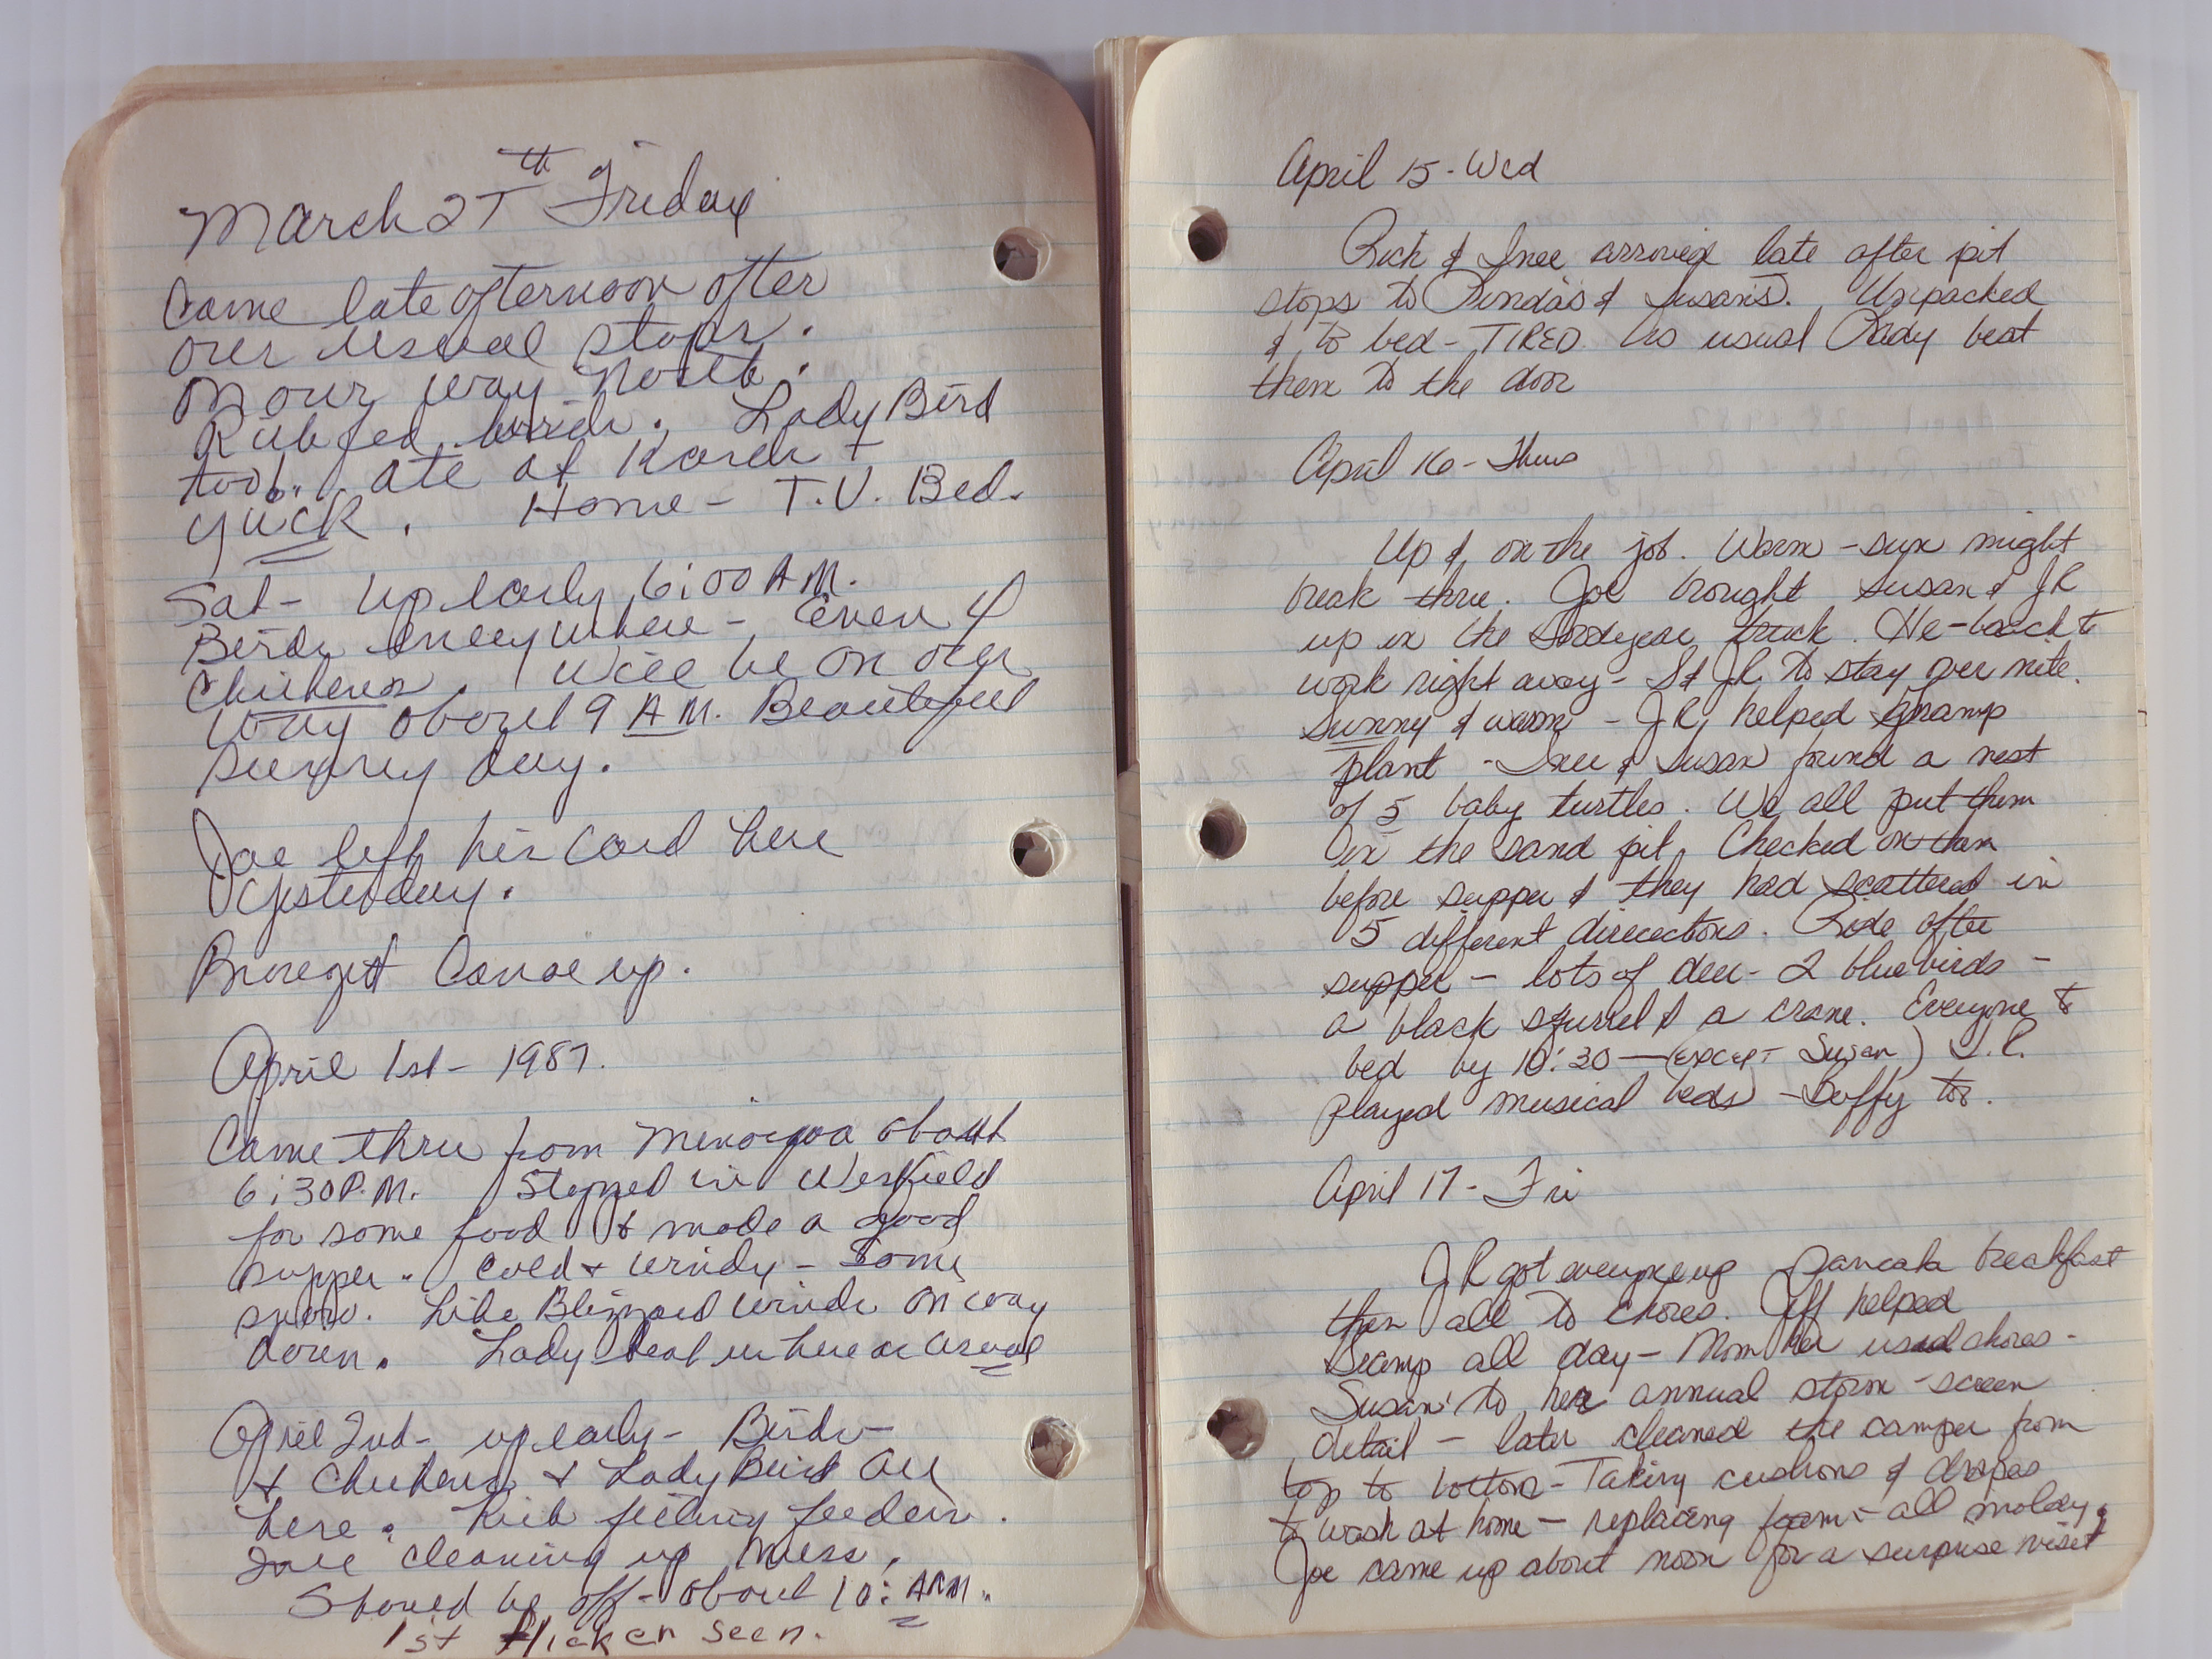 March 27th Friday
Came late afternoon after
our usual stops.
On our way North.
Rick fed birds. Lady Bird
too. Ate at Karch +
yuck. Home - T.V. Bed.
Sat - Up early 6:00 A.M.
Birds everywhere - Even 4
Chickens. Will be on our
way about 9 A.M. Beautiful
sunny day.
Joe left his card here
yesterday.
Brought Canoe up.
April 1st - 1987.
Came thru from Minocqua about
6:30 P.M. Stopped in Westfield
for some food & made a good
supper. Cold + windy - Some
snow. Like Blizzard winds on way
down. Lady beat us here as usual
April 2nd - up early - Birds -
+ Chickens + Lady Bird all
here. Rick filling feeders.
Inee cleaning up mess.
Should be off - about 10: A.M.
1st flicker seen.
April 15 - Wed
Rick & Inee arrived late after pit
stops to Linda's & Susan's. Unpacked
& to bed - TIRED. As usual Lady beat
them to the door
April 16 - Thurs
Up & on the job. Warm - sun might
break thru. Joe brought Susan & JR
up in the Goodyear truck. He - back to
work right away - S & J.R. to stay over nite.
Sunny & warm - J.R. helped Gramp
plant - Inee & Susan found a nest
of 5 baby turtles. We all put them
in the sand pit. Checked on them
before supper & they had scattered in
5 different direcections. Ride after
supper - lots of deer - 2 bluebirds -
a black squrrel & a crane. Everyone to
bed by 10:30 - (except Susan) J.R.
played musical beds - Buffy too.
April 17 - Fri
JR got everyone up Pancake breakfast
then all to chores. Jeff helped
Gramp all day - Mom her usual chores -
Susan to her annual storm - screen
detail - later cleaned the camper from
top to bottom - Taking cushions & drapes
to wash at home - replacing foam - all moldy.
Joe came up about noon for a surprise visit